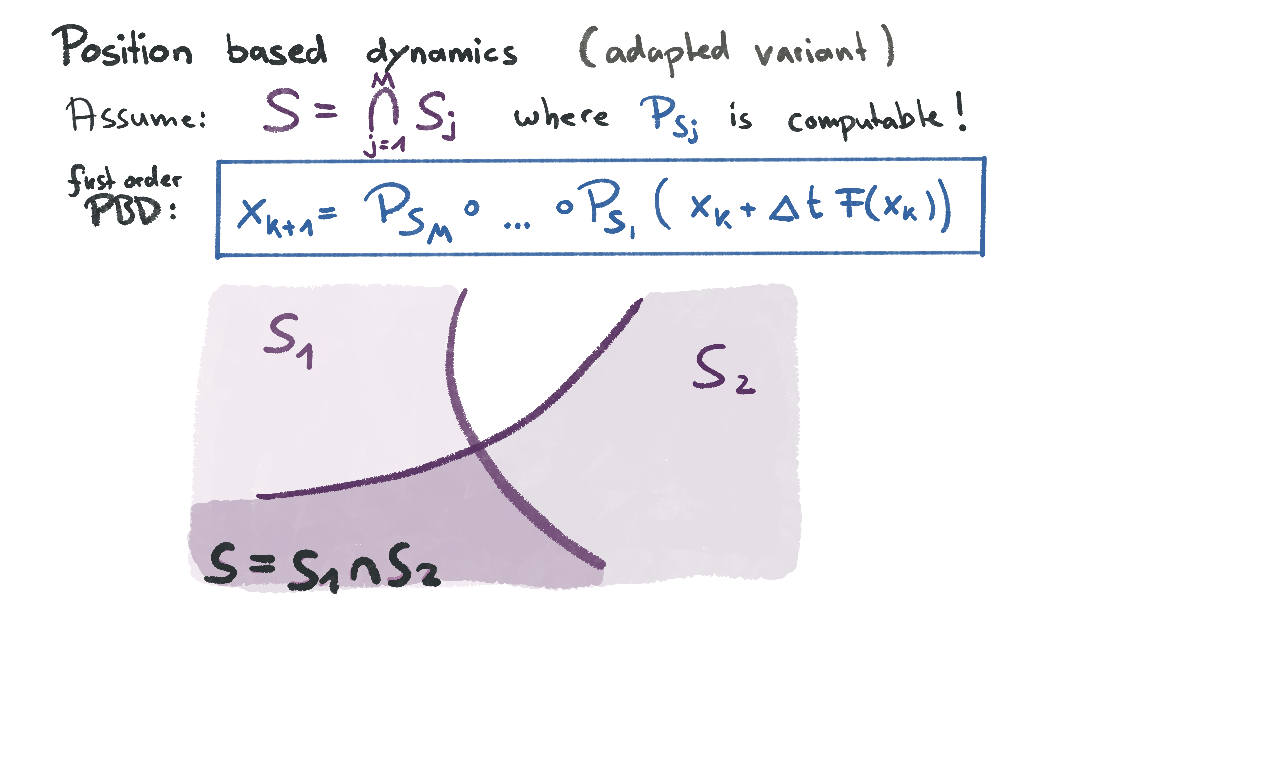 Position based dynamics (adapted variant)
Assume: S = ⋂_{j=1}^{M} S_j where P_{S_j} is computable!
first order
PBD: x_{k+1} = P_{S_M} ∘ ... ∘ P_{S_1} ( x_k + Δt F(x_k))
S_1
S_2
S = S_1 ∩ S_2